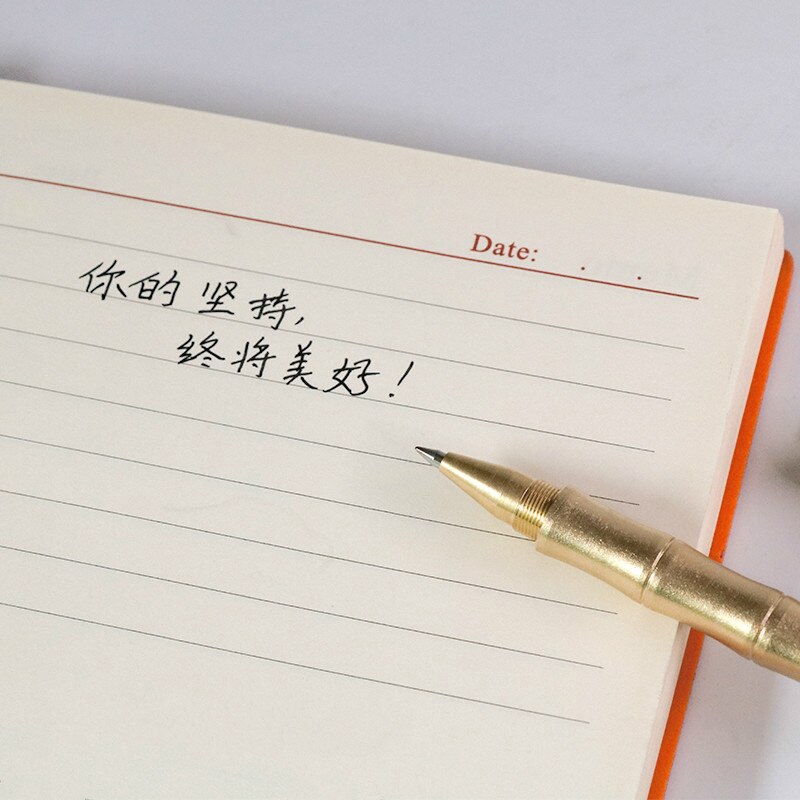 Date: . .
你的坚持,
终将美好!